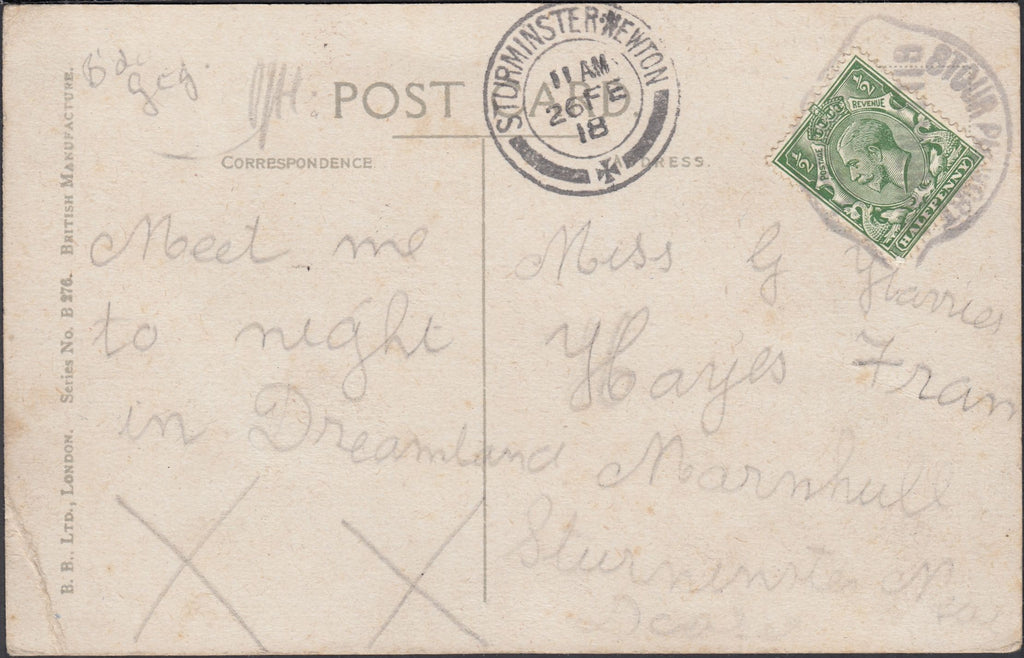 POST CARD
CORRESPONDENCE
ADDRESS.
STURMINSTER·NEWTON
11 AM
26 FE
18
STOUR
REVENUE
POSTAGE
½
½
HALFPENNY
Meet me
to night
in Dreamland
X X
Miss G Harries
Hayes Fram
Marnhull
Sturminster N
B. B., LTD., LONDON. Series No. B 276. BRITISH MANUFACTURE.